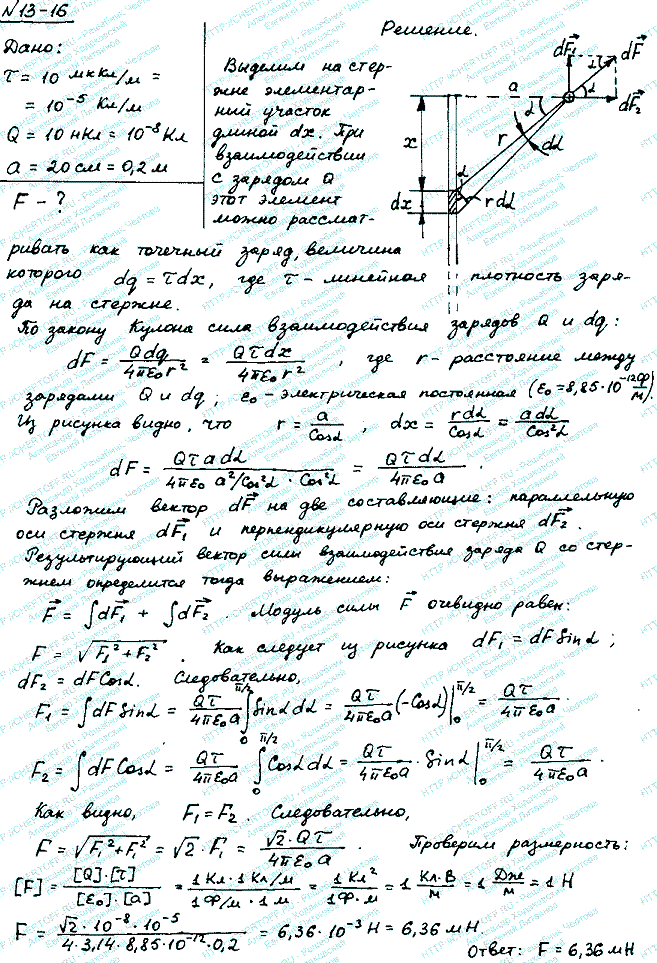 №13-16
Дано:
τ = 10 мккл/м =
= 10⁻⁵ Кл/м
Q = 10 нКл = 10⁻⁸ Кл
a = 20 см = 0,2 м
F - ?
Решение.
Выделим на стер-
жне элементар-
ный участок
длиной dx. При
взаимодействии
с зарядом Q
этот элемент
можно рассмат-
dF₁ dF
α
a α dF₂
α
x r dα
α
dx r dα
ривать как точечный заряд, величина
которого dq = τdx, где τ - линейная плотность заря-
да на стержне.
По закону Кулона сила взаимодействия зарядов Q и dq:
dF = Qdq/4πε₀r² = Qτdx/4πε₀r², где r - расстояние между
зарядами Q и dq; ε₀ - электрическая постоянная (ε₀ = 8,85·10⁻¹² Ф/м).
Из рисунка видно, что r = a/Cosα, dx = rdα/Cosα = adα/Cos²α
dF = Qτadα/4πε₀ a²/Cos²α · Cos²α = Qτdα/4πε₀a.
Разложим вектор dF на две составляющие: параллельную
оси стержня dF₁ и перпендикулярную оси стержня dF₂.
Результирующий вектор силы взаимодействия заряда Q со стер-
жнем определится тогда выражением:
F = ∫dF₁ + ∫dF₂. Модуль силы F очевидно равен:
F = √F₁²+F₂². Как следует из рисунка dF₁ = dF Sinα;
dF₂ = dF Cosα. Следовательно,
F₁ = ∫dF Sinα = Qτ/4πε₀a ∫₀^π/2 Sinα dα = Qτ/4πε₀a (-Cosα)|₀^π/2 = Qτ/4πε₀a.
F₂ = ∫dF Cosα = Qτ/4πε₀a ∫₀^π/2 Cosα dα = Qτ/4πε₀a · Sinα|₀^π/2 = Qτ/4πε₀a.
Как видно, F₁ = F₂. Следовательно,
F = √F₁²+F₁² = √2·F₁ = √2·Qτ/4πε₀a. Проверим размерность:
[F] = [Q]·[τ]/[ε₀]·[a] = 1 Кл·1 Кл/м/1 Ф/м·1 м = 1 Кл²/1 Ф·м = 1 Кл·В/м = 1 Дж/м = 1 Н
F = √2·10⁻⁸·10⁻⁵/4·3,14·8,85·10⁻¹²·0,2 = 6,36·10⁻³ Н = 6,36 мН.
Ответ: F = 6,36 мН